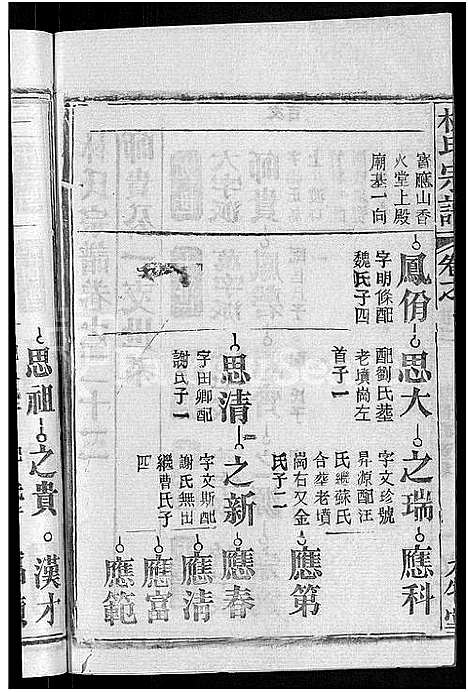 林氏宗譜
卷之
窨應山香
火堂上殿
廟基一向
鳳佾
字明條配
魏氏子四
思大
配劉氏塟
老墳崗左
首子一
之瑞
字文珍號
昇源配汪
氏繼蘇氏
合塟老墳
崗右又金
氏子二
應科
應第
思清
字田卿配
謝氏子一
之新
字文斯配
謝氏無出
繼曹氏子
四
應春
應清
應富
應範
思祖
之貴
漢才